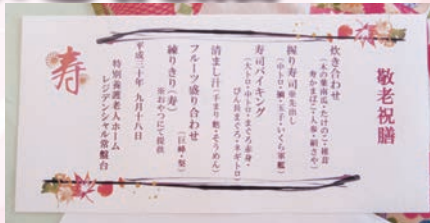 敬老祝膳
炊き合わせ
(木の葉南瓜・たけのこ・椎茸
寿かまぼこ・人参・絹さや)
握り寿司※先出し
(中トロ・鯛・玉子・いくら軍艦)
寿司バイキング
(大トロ・中トロ・まぐろ赤身・
びん長まぐろ・ネギトロ)
清まし汁(手まり麩・そうめん)
フルーツ盛り合わせ
(巨峰・梨)
練りきり(寿)
※おやつにて提供
平成三十年 九月十八日
特別養護老人ホーム
レジデンシャル常盤台
寿